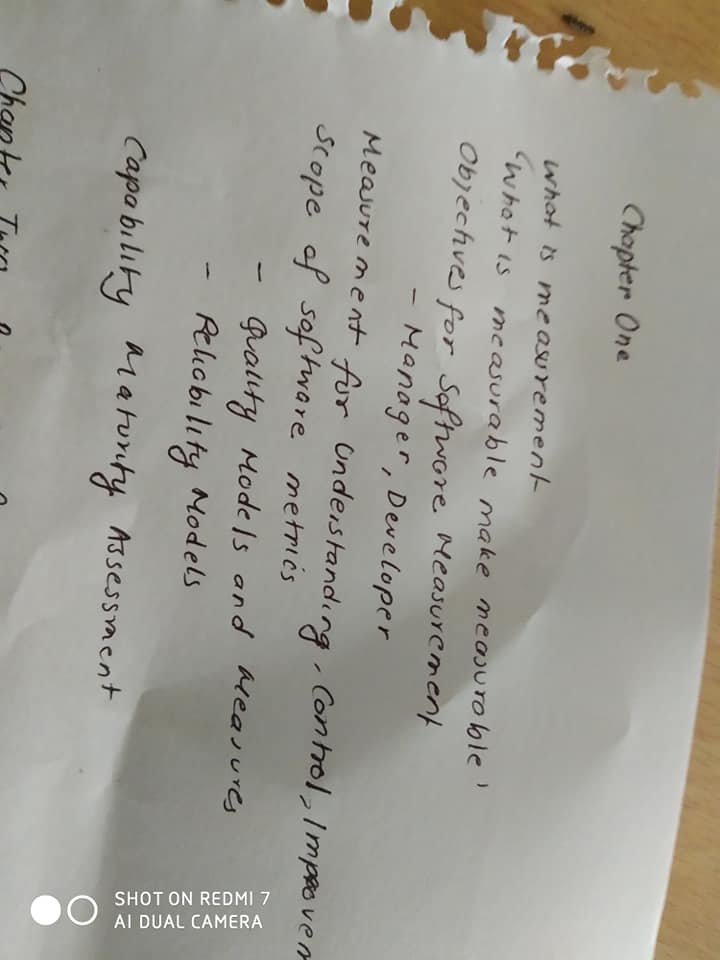 Chapter One
what is measurement
'What is measurable make measurable'
Objectives for Software Measurement
- Manager, Developer
Measurement for Understanding, Control, Improvem
Scope of software metrics
- Quality Models and Measures
- Reliability Models
Capability Maturity Assessment
Chapter Two
SHOT ON REDMI 7
AI DUAL CAMERA